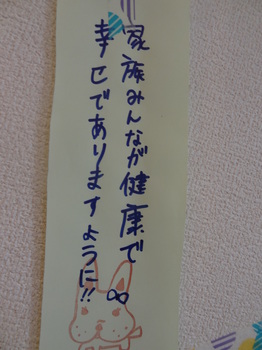 家族みんなが健康で
幸せでありますように!!